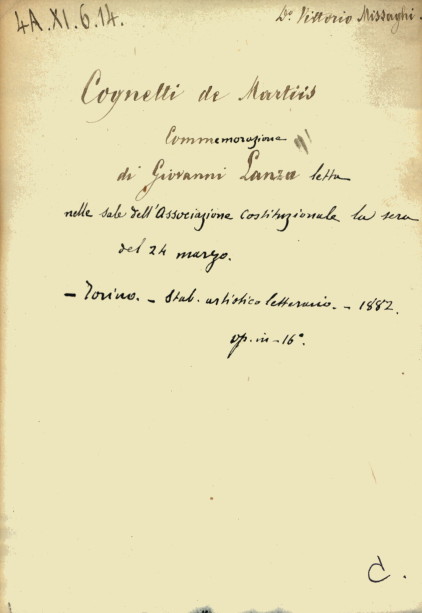 4A.XI.6.14.
Dr. Vittorio Missaghi.
Cognetti de Martiis
Commemorazione
di Giovanni Lanza letta
nelle sale dell'Associazione Costituzionale la sera
del 24 marzo.
— Torino. — Stab. artistico letterario. — 1882.
op. in-16°.
C.